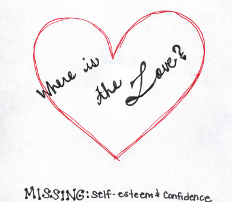 Where is
the Love?
MISSING: self-esteem & Confidence